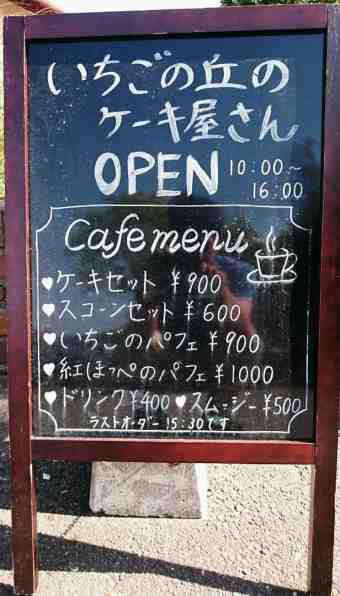 いちごの丘の
ケーキ屋さん
OPEN 10:00~
16:00
Cafe menu
♥ケーキセット ¥900
♥スコーンセット ¥600
♥いちごのパフェ ¥900
♥紅ほっぺのパフェ ¥1000
♥ドリンク¥400 ♥スムージー¥500
ラストオーダー 15:30です